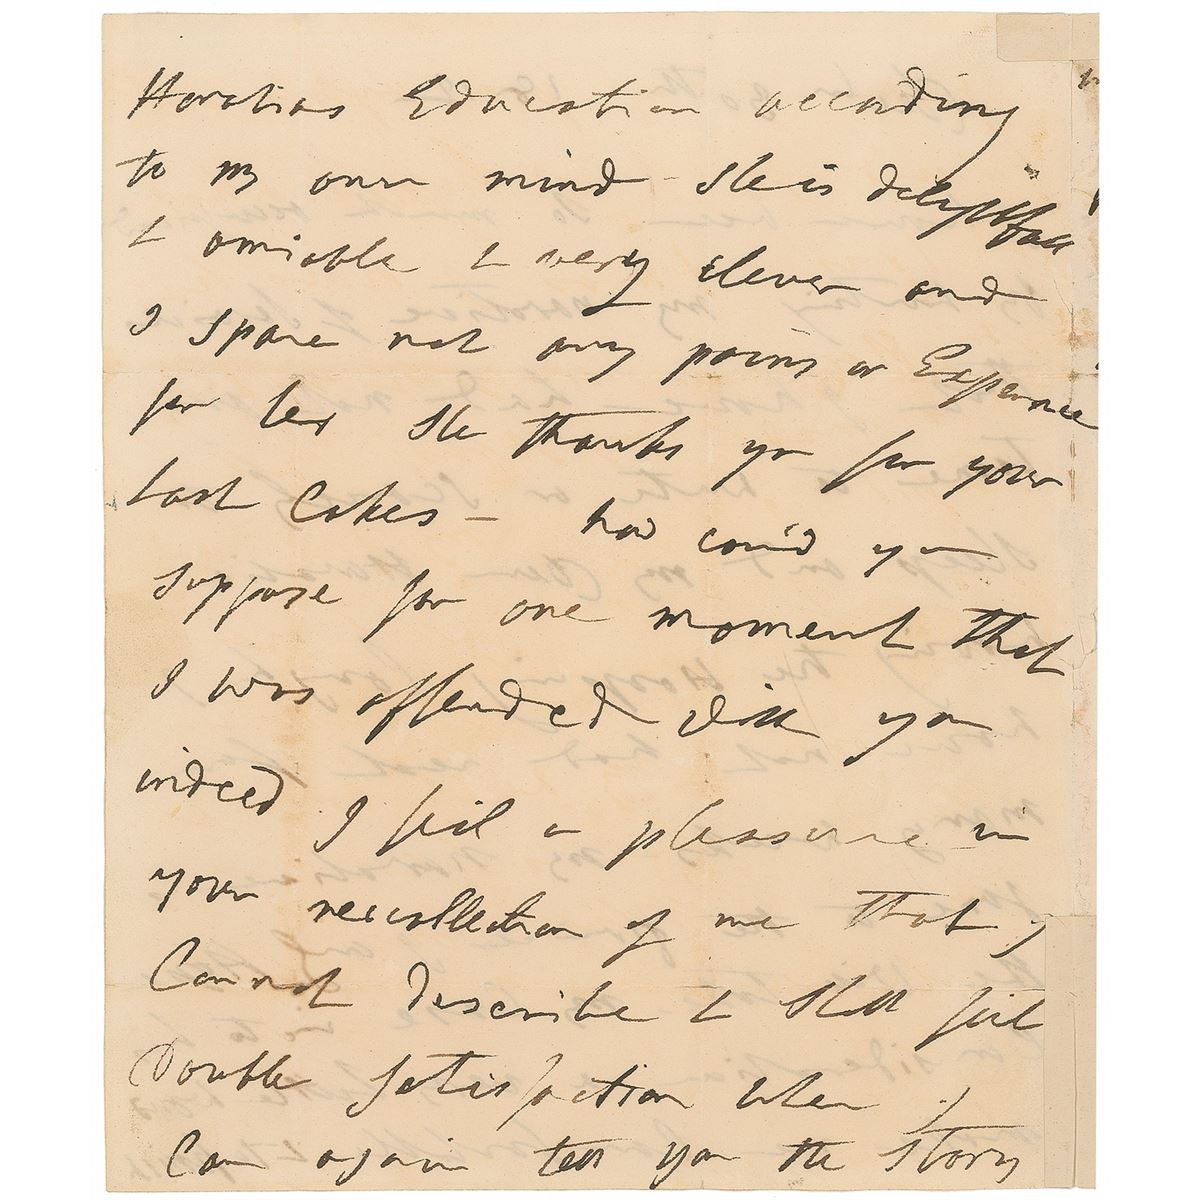 Horatias Education according
to my own mind She is delightfull
& amiable & very clever and
I spare not any pains or Expence
for her She thanks you for your
last Cakes – how cou'd you
suppose for one moment that
I was offended with you
indeed I feil a pleasure in
your reccollection of me that I
Cannot describe & shall feil
Double satisfaction when I
Can again tell you the story